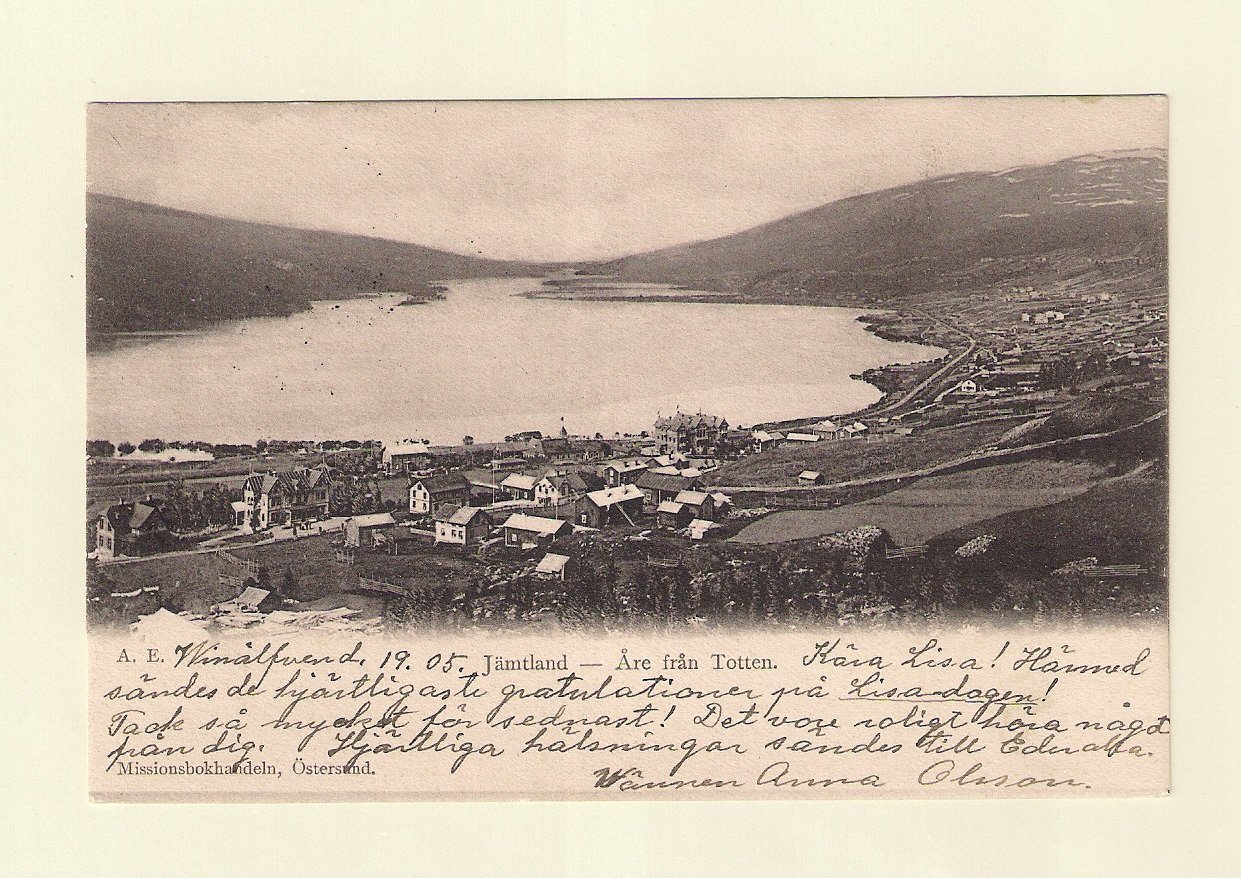 A. E. Winälfvend. 19. 05. Jämtland — Åre från Totten. Kära Lisa! Härmed
sändes de hjärtligaste gratulationer på Lisa-dagen!
Tack så mycket för sednast! Det vore roligt höra något
från dig. Hjärtliga hälsningar sändes till Eder alla.
Missionsbokhandeln, Östersund.
Vännen Anna Olsson.